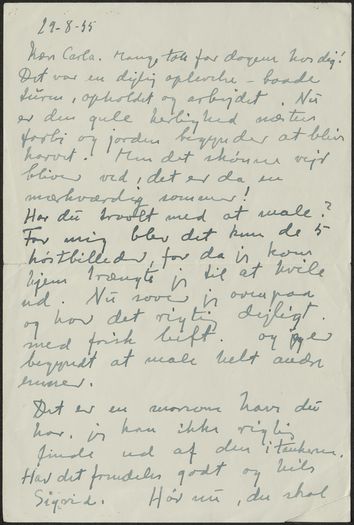 29-8-55
Kære Carla. Mange tak for dagene hos dig!
Det var en dejlig oplevelse – baade
turen, opholdet og arbejdet. Nu
er den gule herlighed næsten
forbi og jorden begynder at blive
harvet. Men det skønne vejr
bliver ved, det er da en
mærkværdig sommer!
Har du travlt med at male?
For mig blev det kun de 5
høstbilleder, for da jeg kom
hjem trængte jeg til at hvile
ud. Nu sover jeg ovenpaa
og har det rigtig dejligt
med frisk luft. og jeg er
begyndt at male helt andre
emner.
Det er en morsom have du
har, jeg kan ikke rigtig
finde ud af den i tankerne.
Har det fremdeles godt og hils
Sigrid. Hør nu, du skal